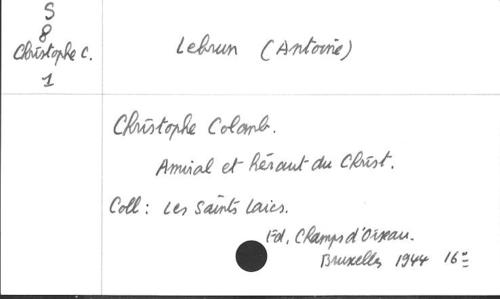 S
8
Christophe C.
1
Lebrun (Antoine)
Christophe Colomb.
Amiral et héraut du Christ.
Coll: Les Saints Laics.
Ed. Champs d'Oiseau.
Bruxelles 1944 16°